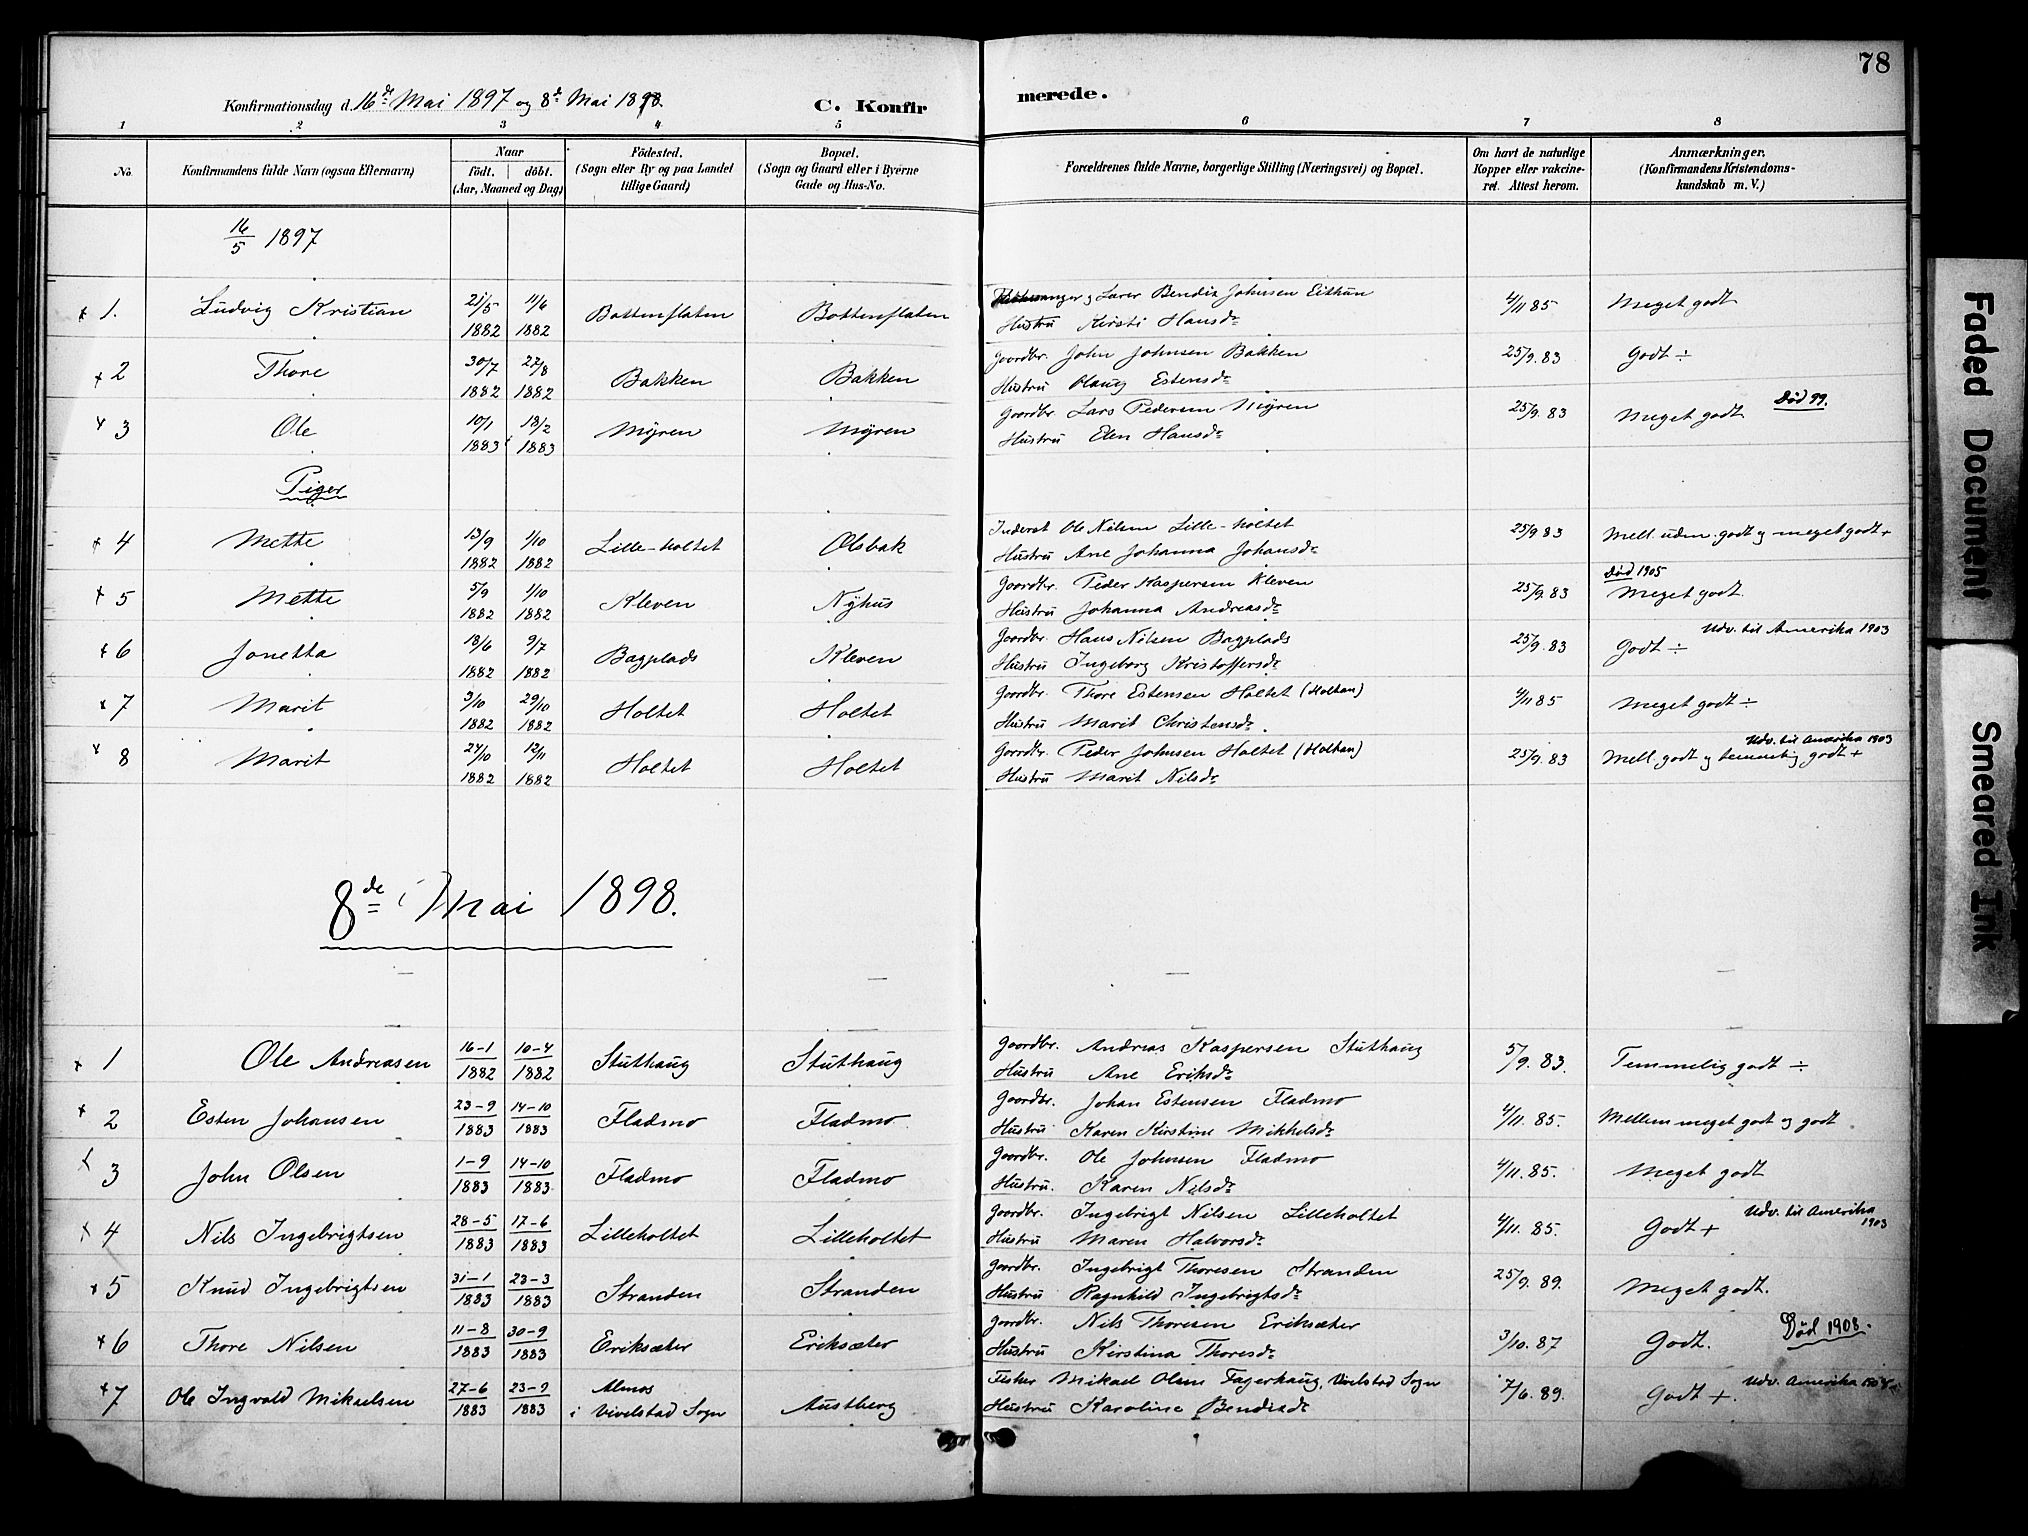 78
Konfirmationsdag d. 16de Mai 1897 og 8de Mai 1898.
C. Konfirmerede.
1 2 3 4 5 6 7 8
No. Konfirmandens fulde Navn (ogsaa Efternavn) Naar født. døbt. (Aar, Maaned og Dag) Fødested. (Sogn eller By og paa Landet tillige Gaard) Bopæl. (Sogn og Gaard eller i Byerne Gade og Hus-No. Forældrenes fulde Navne, borgerlige Stilling (Næringsvei) og Bopæl. Om havt de naturlige Kopper eller vakcineret. Attest herom. Anmærkninger. (Konfirmandens Kristendomskundskab m. V.)
16/5 1897
x 1. Ludvig Kristian 21/5 1882 11/6 1882 Bottenflaten Bottenflaten og Lærer Bendix Johnsen Eithun 4/11 85 Meget godt
Hustru Kirsti Hansdr
x 2 Thore 30/7 1882 27/8 1882 Bakken Bakken Gaardbr. John Johnsen Bakken 25/9. 83 Godt ÷
Hustru Olaug Estensdr
x 3 Ole 10/1 1883 18/2 1883 Myren Myren Gaardbr. Lars Pedersen Myren 25/9. 83 Meget godt Død 99.
Hustru Elen Hansdr
Piger
x 4 Mette 13/9 1882 1/10 1882 Lille-holtet Olsbak Inderst Ole Nilsen Lille-holtet 25/9 83 Mell. uden. godt og meget godt +
Hustru Ane Johanna Johansdr
x 5 Mette 5/9 1882 1/10 1882 Kleven Nyhus Gaardbr. Peder Kaspersen Kleven 25/9. 83 Død 1905 Meget godt.
Hustru Johanna Andreasdr
x 6 Jonetta 18/6 1882 9/7 1882 Bagplads Kleven Gaardbr. Hans Nilsen Bagplads 25/9. 83 Godt ÷ Udv. til Amerika 1903
Hustru Ingeborg Kristoffersdr
x 7 Marit 3/10 1882 29/10 1882 Holtet Holtet Gaardbr. Thore Estensen Holtet (Holtan) 4/11 85 Meget godt ÷
Hustru Marit Christensdr.
x 8 Marit 24/10 1882 12/11 1882 Holtet Holtet Gaardbr. Peder Johnsen Holtet (Holtan) 25/9. 83 Mell. godt og temmelig godt + Udv. til Amerika 1903
Hustru Marit Nilsdr
8de Mai 1898.
x 1 Ole Andreasen 16-1 1882 10-4 1882 Stuthaug Stuthaug Gaardbr. Andreas Kaspersen Stuthaug 5/9. 83. Temmelig godt ÷
Hustru Ane Eriksdr
x 2 Esten Johansen 23-9 1883 14-10 1883 Fladmo Fladmo Gaardbr. Johan Estensen Fladmo 4/11. 85. Mellem meget godt og godt
Hustru Karen Kirstine Mikkelsdr
x 3 John Olsen 1-9 1883 14-10 1883 Fladmo Fladmo Gaardbr. Ole Johnsen Fladmo 4/11. 85. Meget godt
Hustru. Karen Nilsdr
x 4 Nils Ingebrigtsen 28-5 1883 17-6 1883 Lilleholtet Lilleholtet Gaardbr. Ingebrigt Nilsen Lilleholtet 4/11. 85. Godt + Udv. til Amerika 1903
Hustru Maren Halvorsdr
x 5 Knud Ingebrigtsen 31-1 1883 23-3 1883 Stranden Stranden Gaardbr. Ingebrigt Thoresen Stranden 25/9. 89. Meget godt.
Hustru Ragnhild Ingebrigtsdr
x 6 Thore Nilsen 11-8 1883 30-9 1883 Eriksæter Eriksæter Gaardbr. Nils Thoresen Eriksæter 3/10. 87 Godt. Død 1908.
Hustru Kirstina Thoresdr
x 7 Ole Ingvald Mikaelsen 27-6 1883 23-9 1883 Almos i Vivelstad Sogn Austberg Fisker Mikael Olsen Fagerhaug, Vivelstad Sogn 7/6. 89. Godt +. Udv. Amerika
Hustru Karoline Bendixdr
Faded Document
Smeared Ink